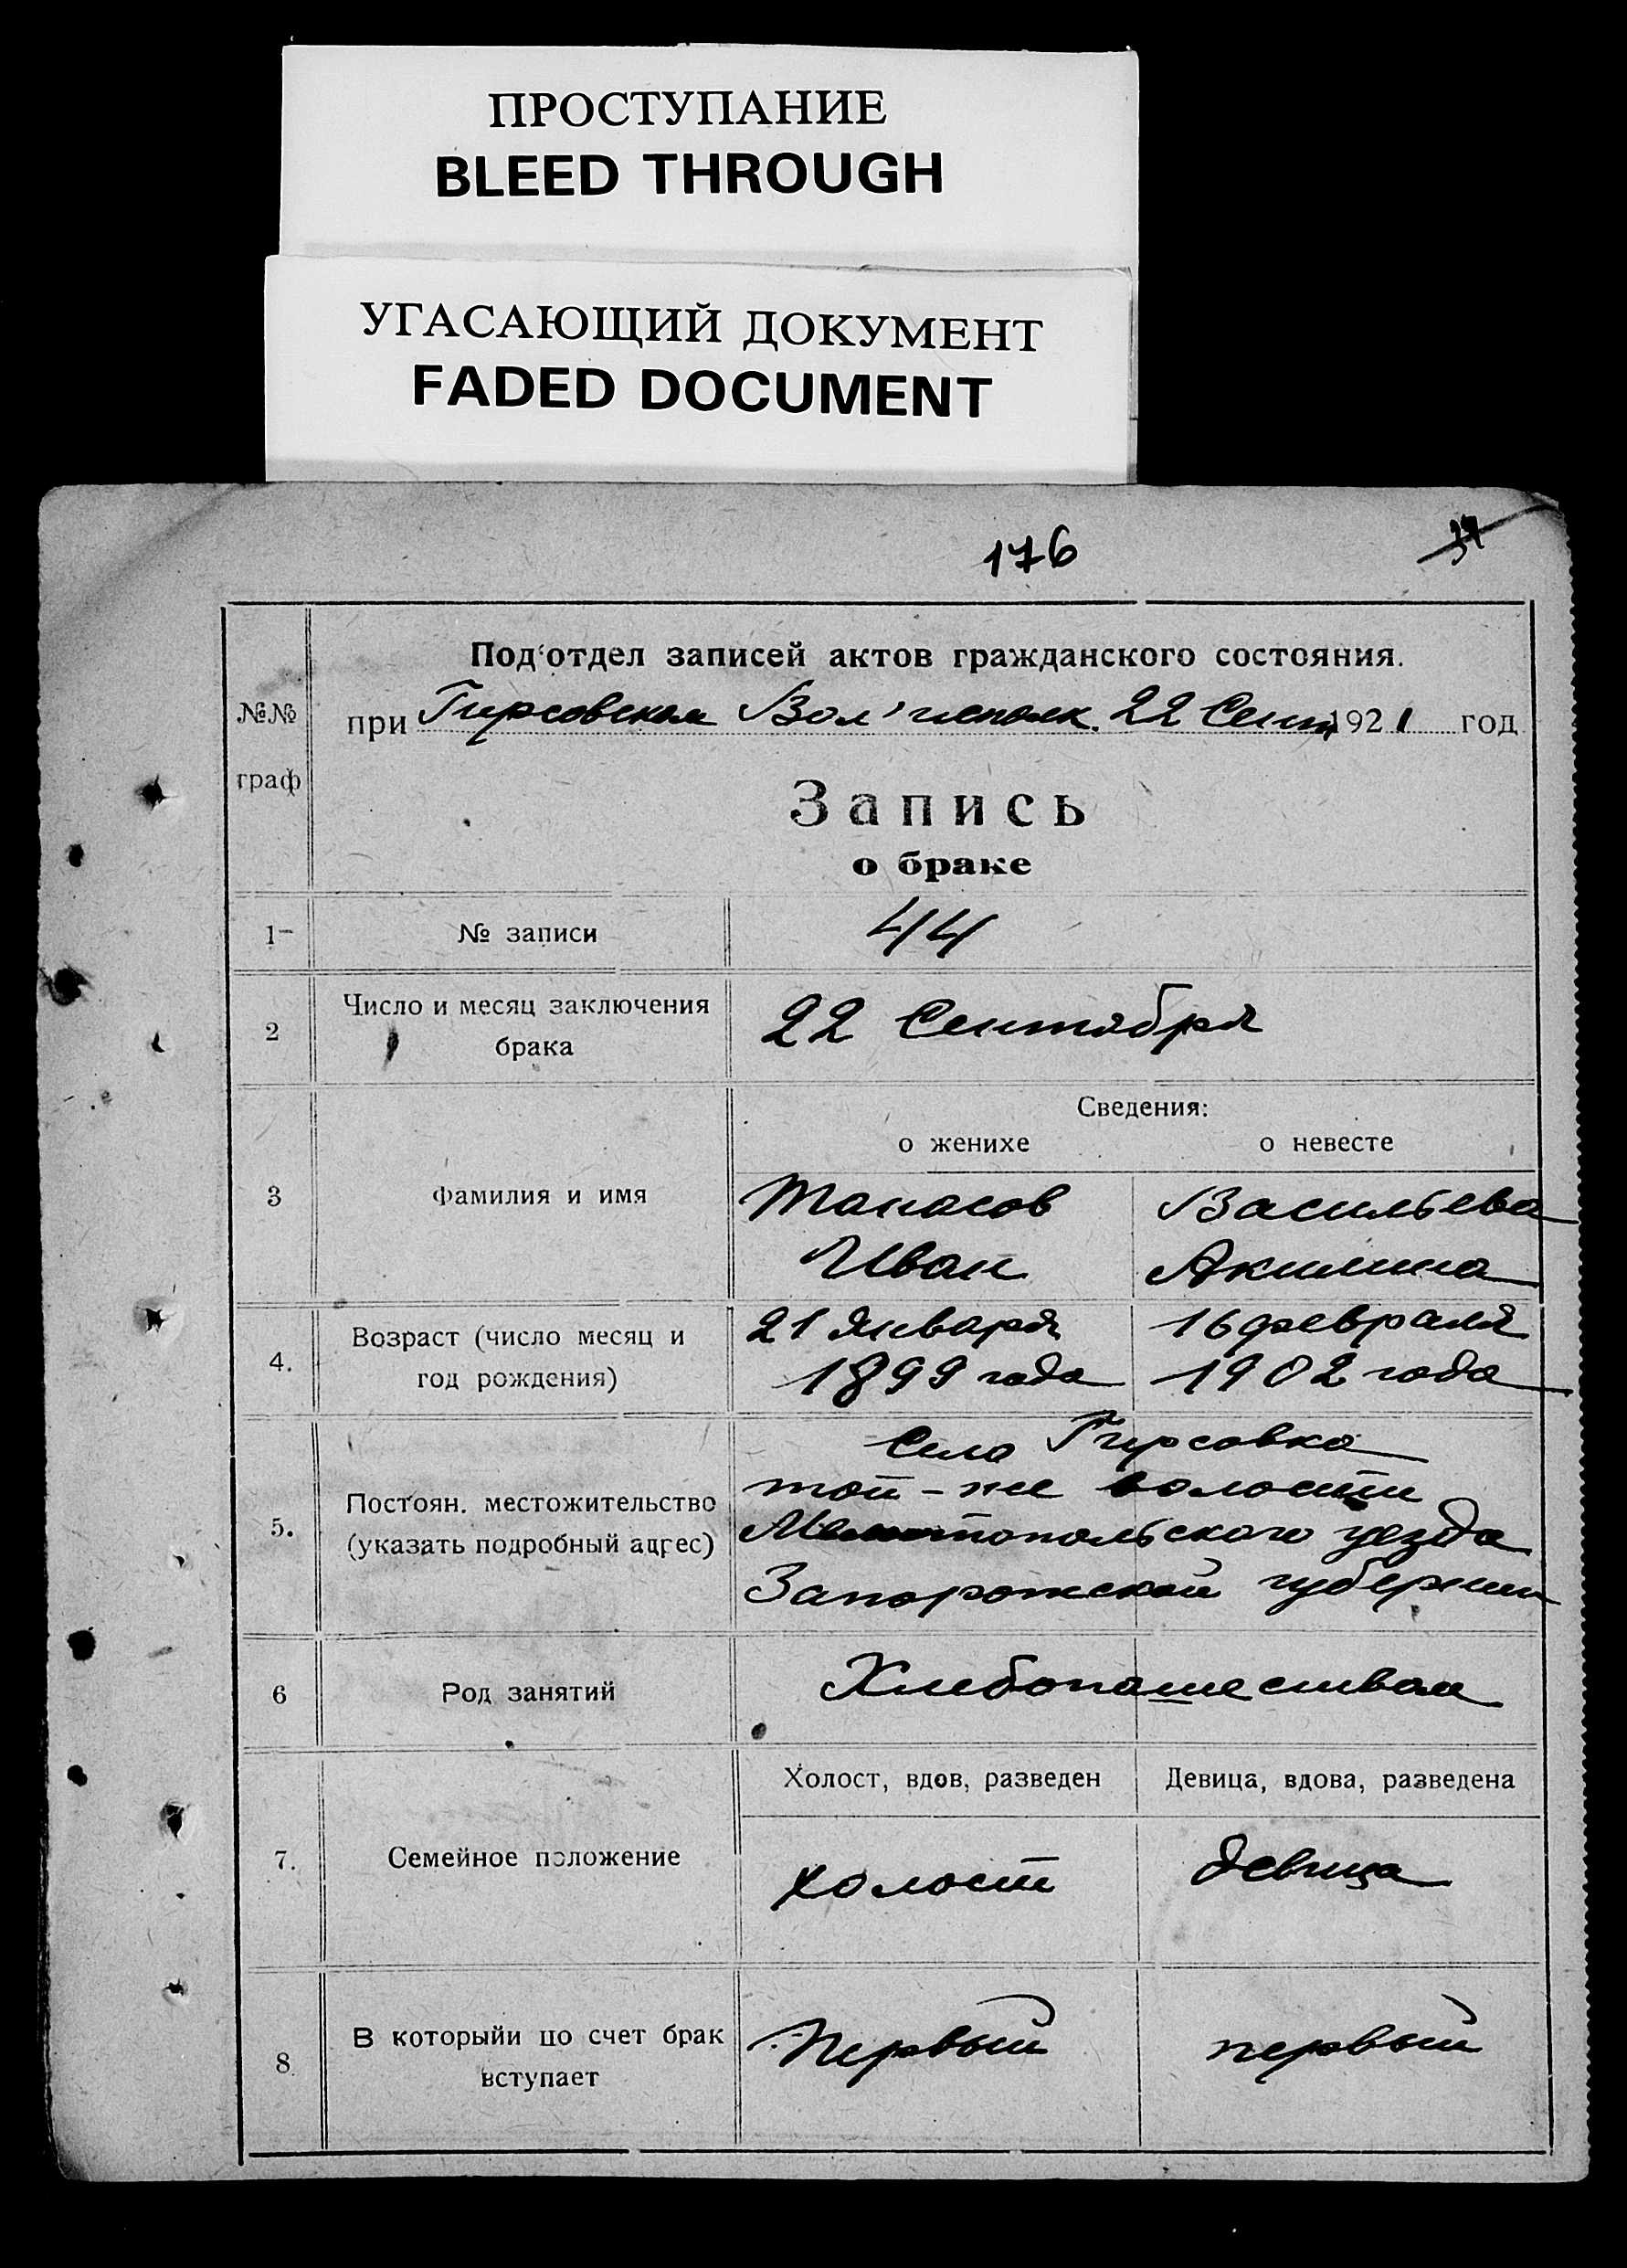 ПРОСТУПАНИЕ
BLEED THROUGH
УГАСАЮЩИЙ ДОКУМЕНТ
FADED DOCUMENT
176
Под'отдел записей актов гражданского состояния.
№№ при Гирсовском Вол'исполк. 22 Сент 1921 год
граф
Запись
о браке
1 № записи 44
2 Число и месяц заключения брака 22 Сентября
Сведения:
о женихе о невесте
3 Фамилия и имя Танасов Васильева
Иван Акилина
4. Возраст (число месяц и год рождения) 21 Января 16 февраля
1899 года 1902 года
Село Гирсовка
5. Постоян. местожительство той-же волости
(указать подробный адрес) Мелитопольского уезда
Запорожской губернии
6 Род занятий Хлебопашеством
Холост, вдов, разведен Девица, вдова, разведена
7. Семейное положение холост девица
8 В которыйи по счет брак вступает Первый первый